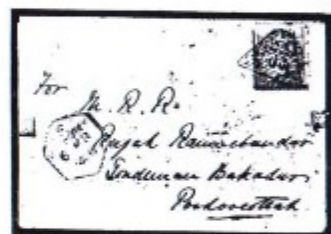 For
M. R. R.
Rajah Ramachandra
Tondiman Bahadur
Poodoocottah